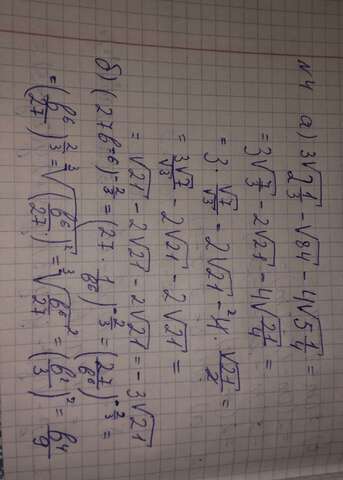 N4 а) 3√2 1/3 - √84 - 4√5 1/4 =
= 3√7/3 - 2√21 - 4√21/4 =
= 3 · √7/√3 - 2√21 - ²4 · √21/2 =
= 3√7/√3 - 2√21 - 2√21 =
= √21 - 2√21 - 2√21 = -3√21
б) (27b⁻⁶)^-2/3 = (27 · 1/b⁶)^-2/3 = (27/b⁶)^-2/3 =
= (b⁶/27)^2/3 = ³√(b⁶/27)² = ³√b⁶/27² = (b²/3)² = b⁴/9